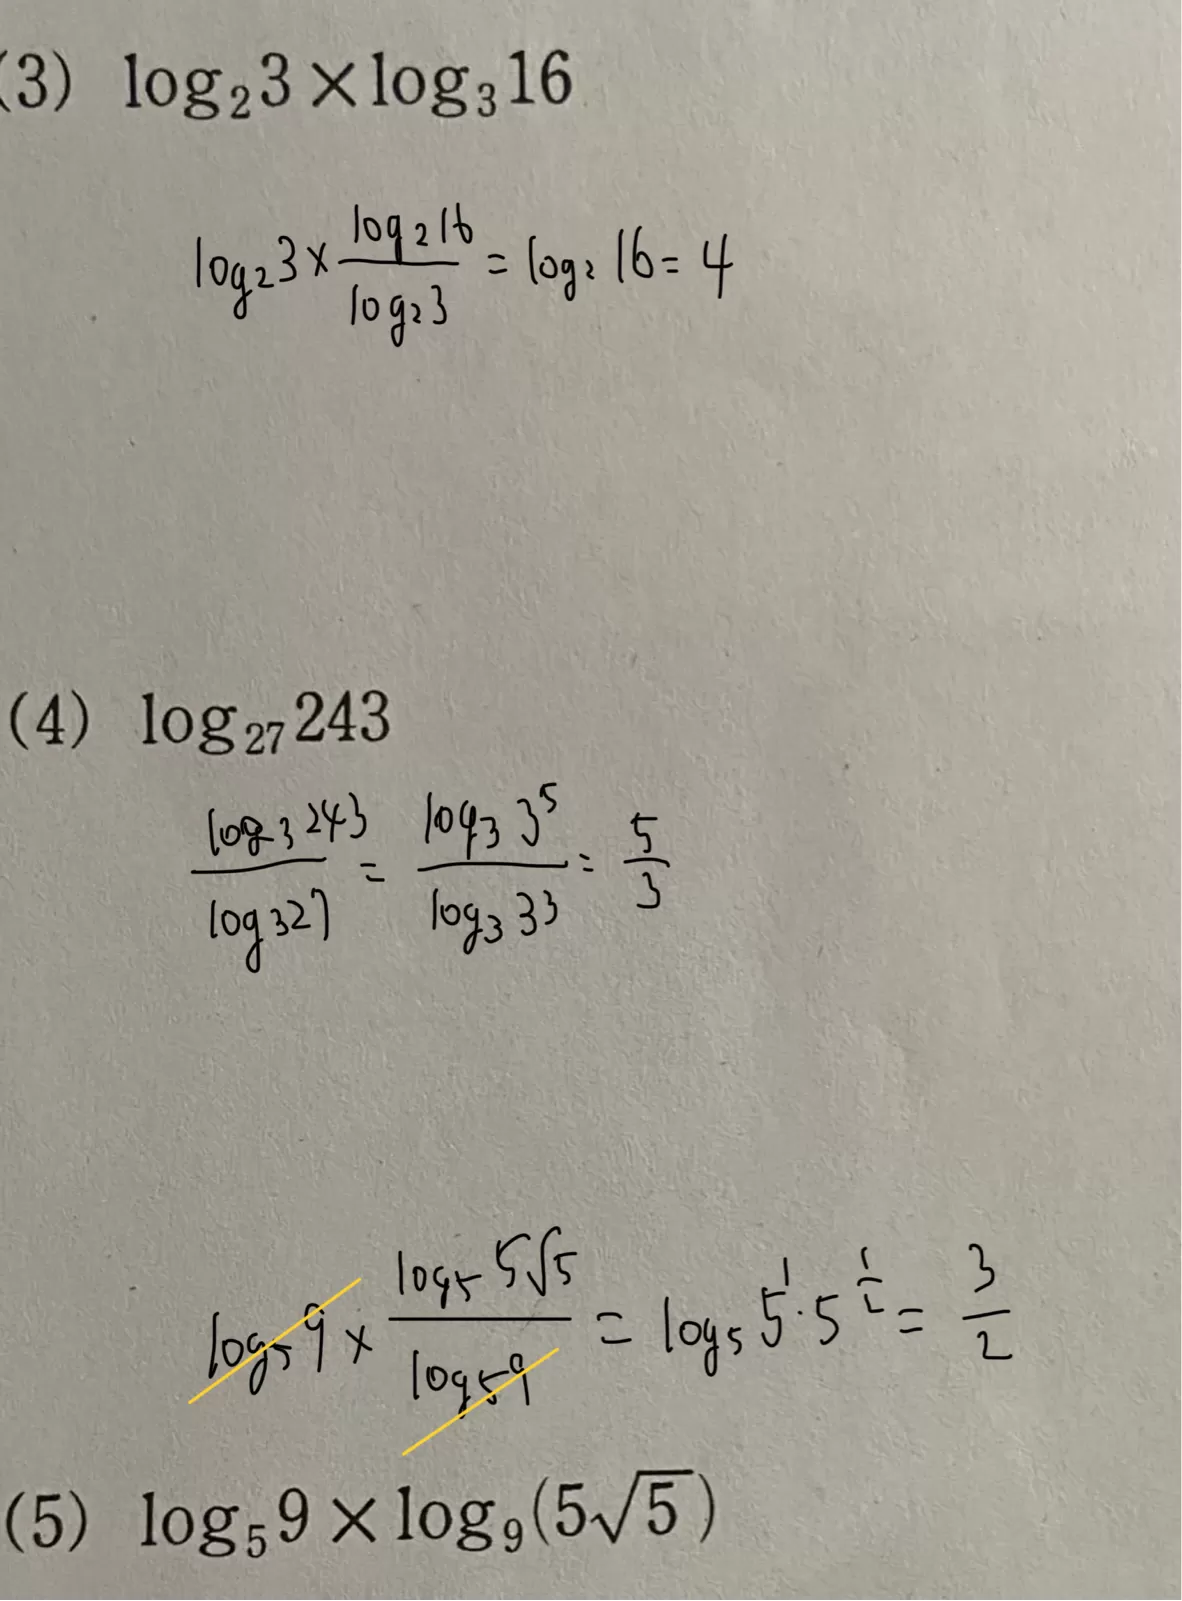 (3) log₂3×log₃16
log₂3×(log₂16)/(log₂3)=log₂16=4
(4) log₂₇243
(log₃243)/(log₃27)=(log₃3⁵)/(log₃3³)=5/3
log₅9×(log₅5√5)/(log₅9)=log₅5¹·5^(1/2)=3/2
(5) log₅9×log₉(5√5)